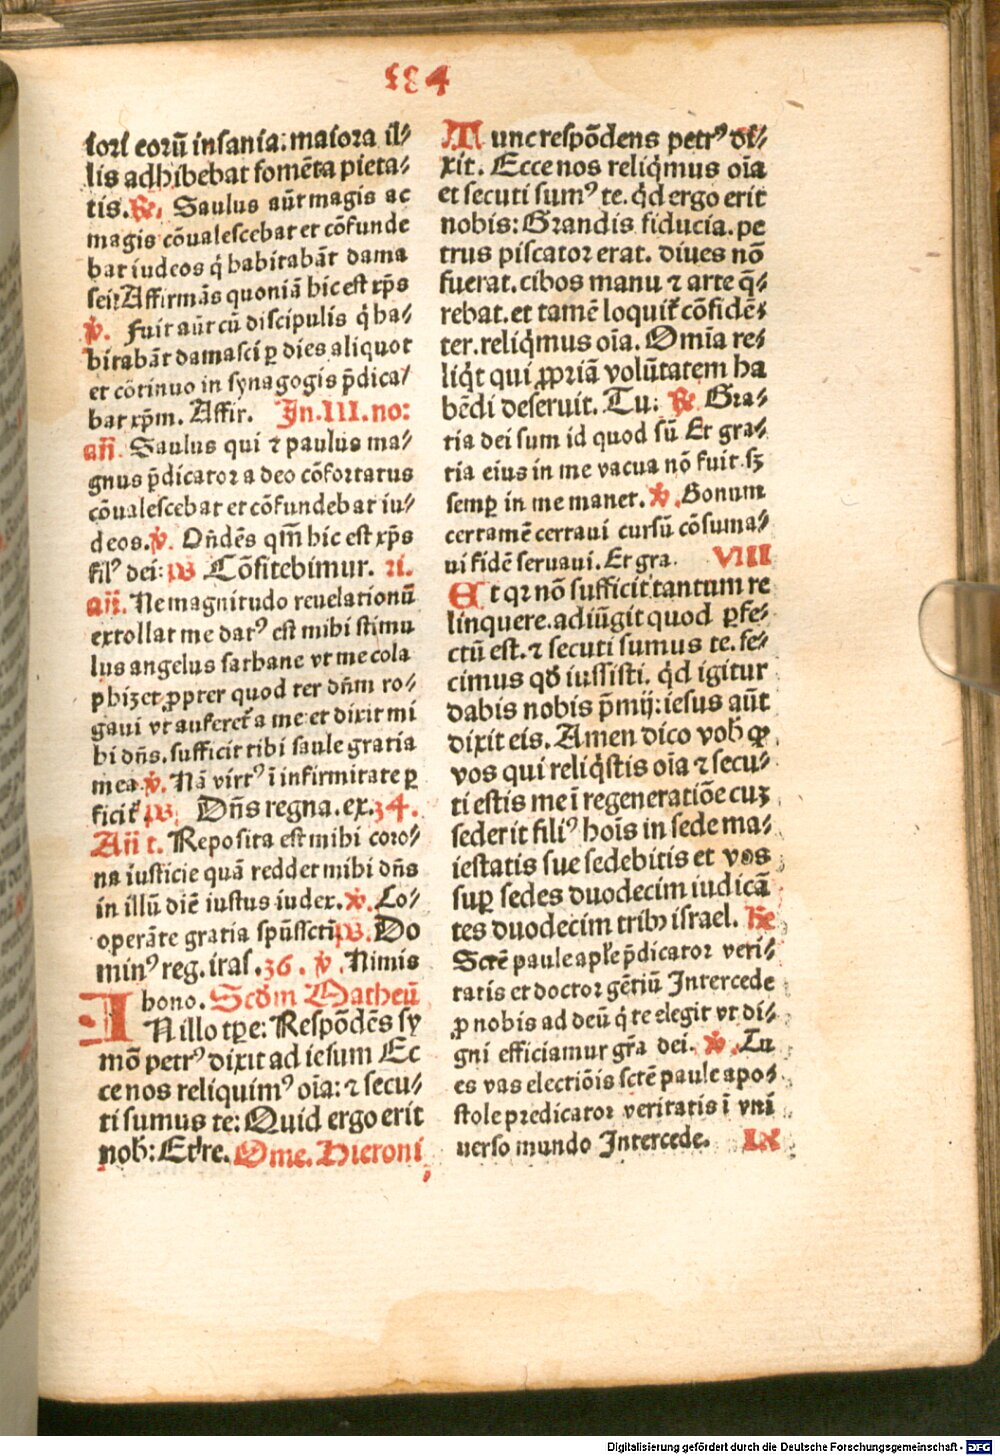 184
iori eorū insania: maiora il⸗
lis adhibebat fomēta pieta⸗
tis. ℟. Saulus aūt magis ac
magis cōualescebat et cōfunde
bat iudeos q̇ habitabāt dama
sci: Affirmās quoniā hic est xp̄s
℣. Fuit aūt cū discipulis q̇ ha⸗
bitabāt damasci ꝑ dies aliquot
et cōtinuo in synagogis p̄dica⸗
bat xp̄m. Affir. In .III. no:
añ. Saulus qui ⁊ paulus ma⸗
gnus p̄dicator a deo cōfortatus
cōualescebat et cōfundebat iu⸗
deos. ℣. Ondēs qm̄ hic est xp̄s
filꝰ dei: ps Cōfitebimur. ii.
añ. Ne magnitudo reuelationū
extollat me datꝰ est mihi stimu
lus angelus sathane vt me cola
phizet ꝓpter quod ter dn̄m ro⸗
gaui vt auferet᷑ a me et dixit mi
hi dn̄s. sufficit tibi saule gratia
mea. ℣. Nā virtꝰ ī infirmitate ꝑ
ficit᷑ ps. Dn̄s regna. ex. 34.
Añ t. Reposita est mihi coro⸗
na iusticie quā reddet mihi dn̄s
in illū diē iustus iudex. ℣. Co⸗
operāte gratia spūssctī ps. Do
minꝰ reg. iras. 36. ℣. Nimis
bono. Scd̄m Matheū
IN illo tp̄e: Respōdēs sy
mō petrꝰ dixit ad iesum Ec
ce nos reliquimꝰ oīa: ⁊ secu⸗
ti sumus te: Quid ergo erit
nob̄: Et re. Ome. Hieroni
Tunc respōdens petrꝰ di⸗
xit. Ecce nos reliq̇mus oīa
et secuti sumꝰ te. q̇d ergo erit
nobis: Grandis fiducia. pe
trus piscator erat. diues nō
fuerat. cibos manu ⁊ arte q̄⸗
rebat. et tamē loquit᷑ cōfidē⸗
ter. reliq̇mus oīa. Omīa re⸗
liq̇t qui ꝓpriā volūtatem ha
bēdi deseruit. Tu: ℟ Gra⸗
tia dei sum id quod sū Et gra⸗
tia eius in me vacua nō fuit sꝫ
semꝑ in me manet. ℣. Bonum
certamē certaui cursū cōsuma⸗
ui fidē seruaui. Et gra. VIII
Et qꝛ nō sufficit tantum re
linquere. adiūgit quod ꝑfe⸗
ctū est. ⁊ secuti sumus te. fe⸗
cimus qd̄ iussisti. q̇d igitur
dabis nobis p̄mij: iesus aūt
dixit eis. Amen dico vob̄ ꝙ
vos qui reliq̇stis oīa ⁊ secu⸗
ti estis me ī regeneratiōe cuꝫ
sederit filiꝰ hoīs in sede ma⸗
iestatis sue sedebitis et vos
suꝑ sedes duodecim iudicā
tes duodecim tribꝰ israel. ℟e
Sctē paule ap̄le p̄dicator veri⸗
tatis et doctor gētiū Intercede
ꝓ nobis ad deū q̇ te elegit vt di⸗
gni efficiamur gr̄a dei. ℣. Tu
es vas electiōis sctē paule apo⸗
stole predicator veritatis ī vni
uerso mundo Intercede. IX
Digitalisierung gefördert durch die Deutsche Forschungsgemeinschaft - DFG